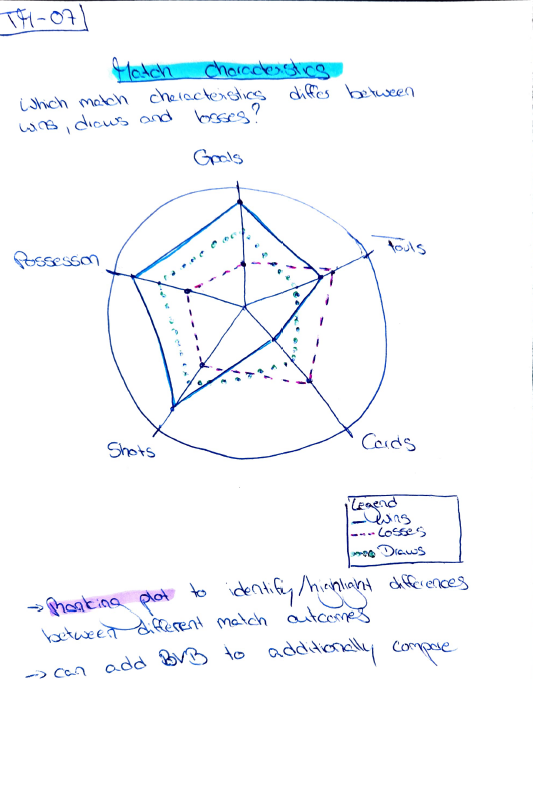 TM-07
Match characteristics
Which match characteristics differ between
wins, draws and losses?
Goals
Possession
Fouls
Shots
Cards
Legend
Wins
Losses
Draws
→ plot to identify/highlight differences
between different match outcomes
→ can add BVB to additionally compare